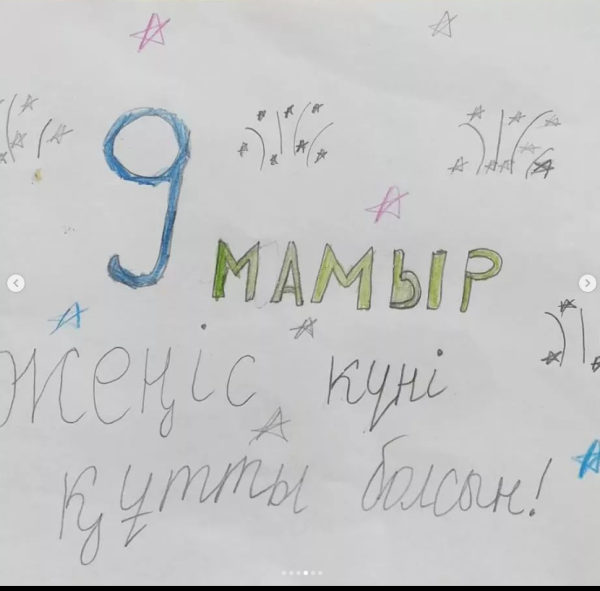 9
МАМЫР
Жеңіс күні
құтты болсын!